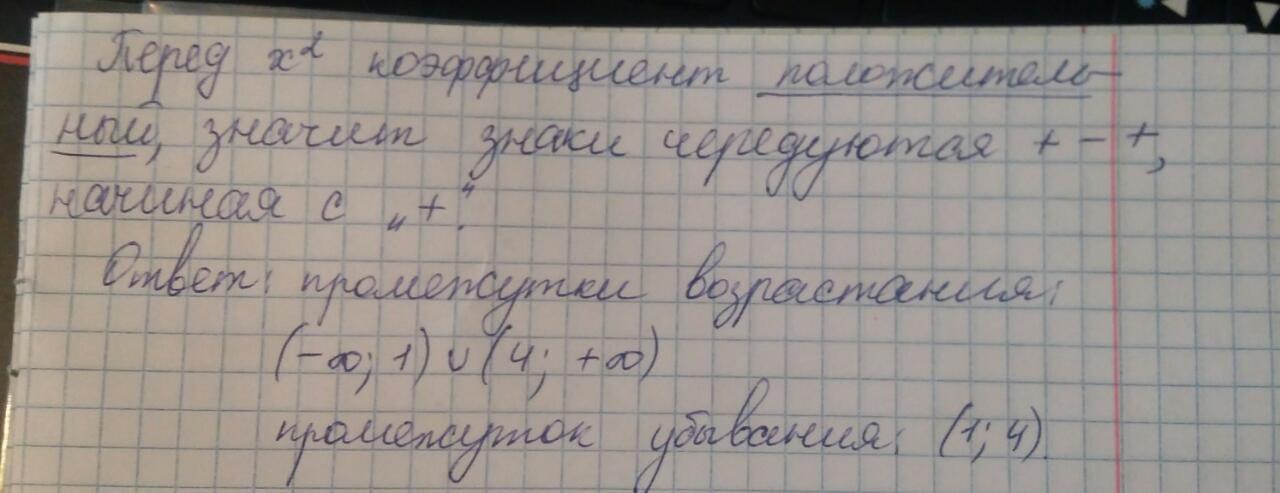 Перед x² коэффициент положитель-
ный, значит знаки чередуются + - +,
начиная с „+“.
Ответ: промежутки возрастания:
(-∞; 1) ∪ (4; +∞)
промежуток убывания: (1; 4).